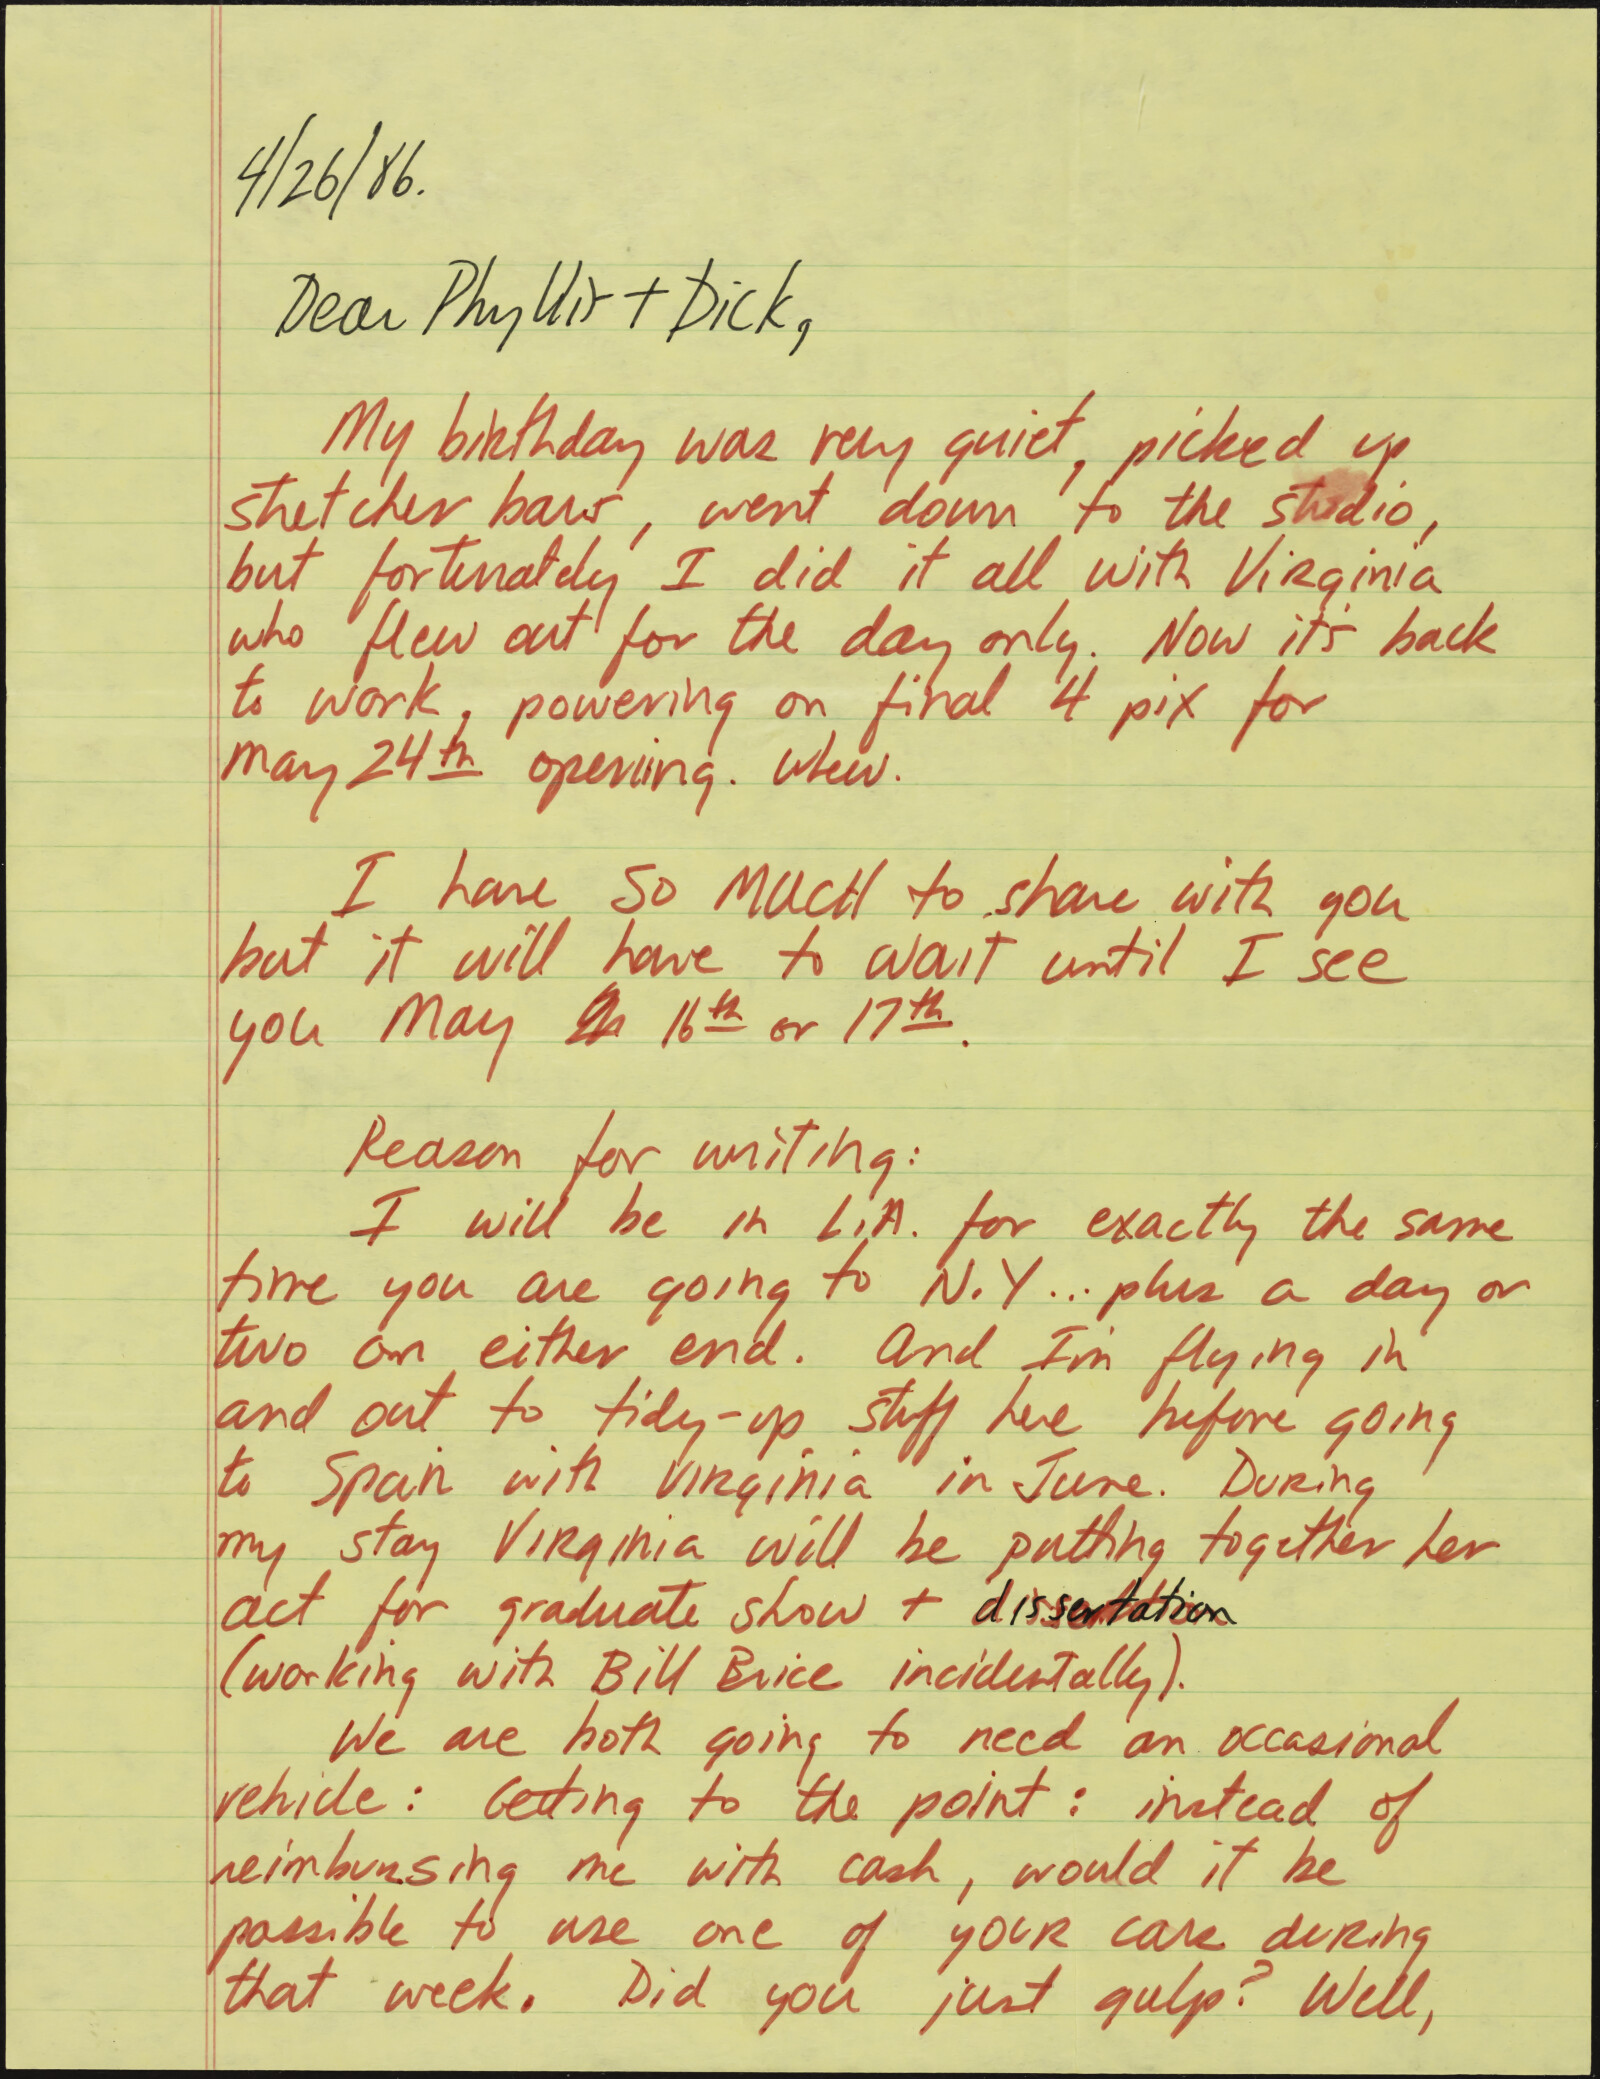 4/26/86.
Dear Phyllis + Dick,
My birthday was very quiet, picked up
stretcher bars, went down to the studio,
but fortunately I did it all with Virginia
who flew out for the day only. Now it's back
to work, powering on final 4 pix for
May 24th opening. Whew.
I have SO MUCH to share with you
but it will have to wait until I see
you May 16th or 17th.
Reason for writing:
I will be in L.A. for exactly the same
time you are going to N.Y... plus a day or
two on either end. And I'm flying in
and out to tidy-up stuff here before going
to Spain with Virginia in June. During
my stay Virginia will be putting together her
act for graduate show + dissertation
(working with Bill Brice incidentally).
We are both going to need an occasional
vehicle: Getting to the point: instead of
reimbursing me with cash, would it be
possible to use one of your cars during
that week. Did you just gulp? Well,